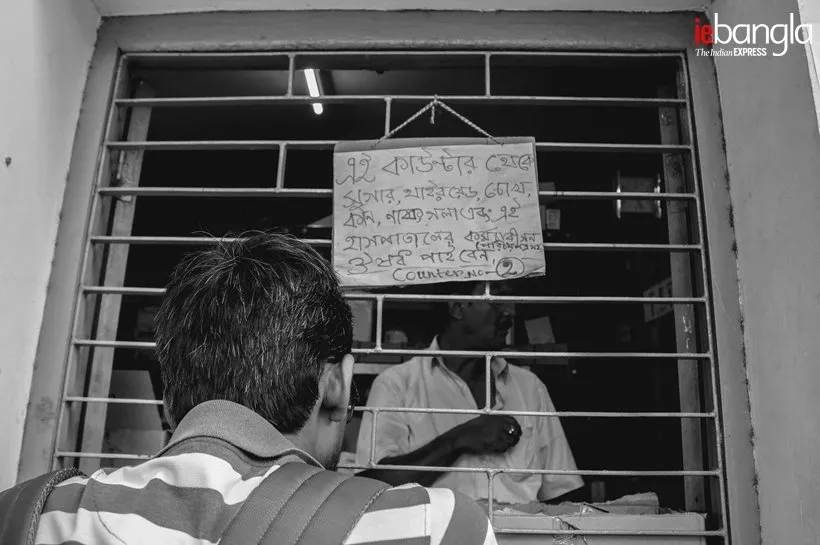 iebangla
The Indian EXPRESS
এই কাউন্টার থেকে
সুগার, থাইরয়েড, চোখ,
কান, নাক, গলা এবং এই
হাসপাতালের কর্মচারীগন
ঔষধ পাইবেন,
Counter No - 2